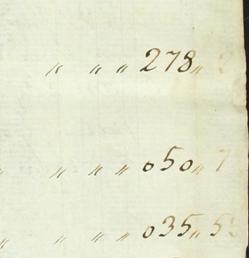 〃 〃 〃 278〃
〃 〃 〃 〃 050〃 7
〃 〃 〃 〃 035〃 5